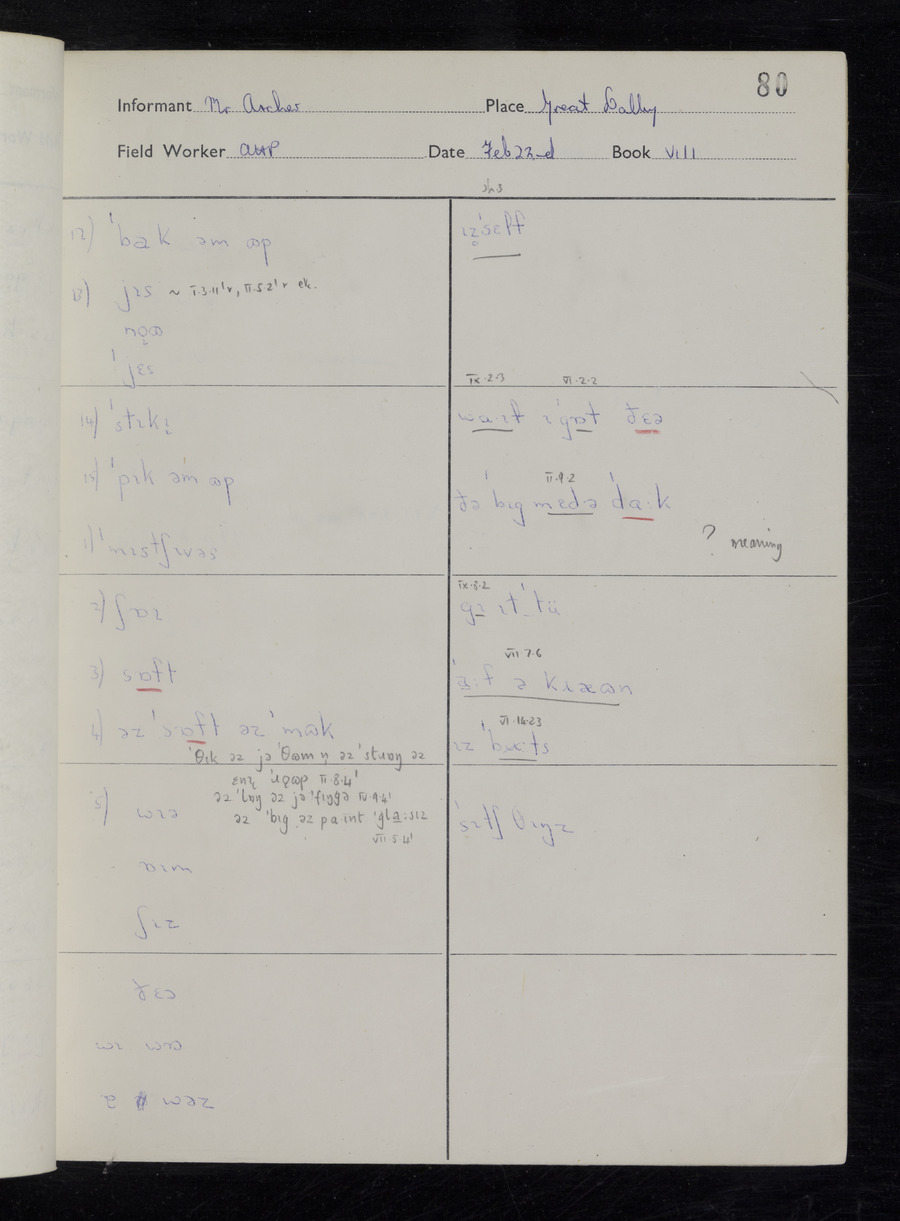 80
Informant Mr Archer Place Great Dalby
Field Worker AHP Date Feb 22nd Book VIII
12) ˈbak əm ɷp
13) jɪs ~ I.3.11ˈr, II.5.2ˈr etc.
nǫɷ
ˈjɛs
14) ˈstɪkɪ̣
15) ˈpɪk əm ɷp
1) ˈmɪstʃɪvəs
2) ʃaɪ
3) sɒft
4) əz ˈsɒft əz ˈmɷk
ˈθɪk əz jə ˈθɷm
II.8.4ˈ
əz ˈlɒŋ əz jə ˈfɪŋgə IV.9.4ˈ
əz ˈbɪg əz paɪnt ˈgla:sɪz
VII.5.4ˈ
5) wɪə
aɪm
ʃɪz
ðɛə
wɪ wə
ɪz̥ˈsɛlf
IX.2.3 VI.2.2
waɪt ɪ ˈgɒt ðɛə
II.9.2
ðə ˈbɪg mɛdə ˈda:k
? meaning
IX.8.2
gɪ ɪt ˈtü
VII.7.6
ˈa:f ə kɹæɷn
VI.14.23
ɪz ˈbʉ:ts
ˈsɪtʃ θɪŋz